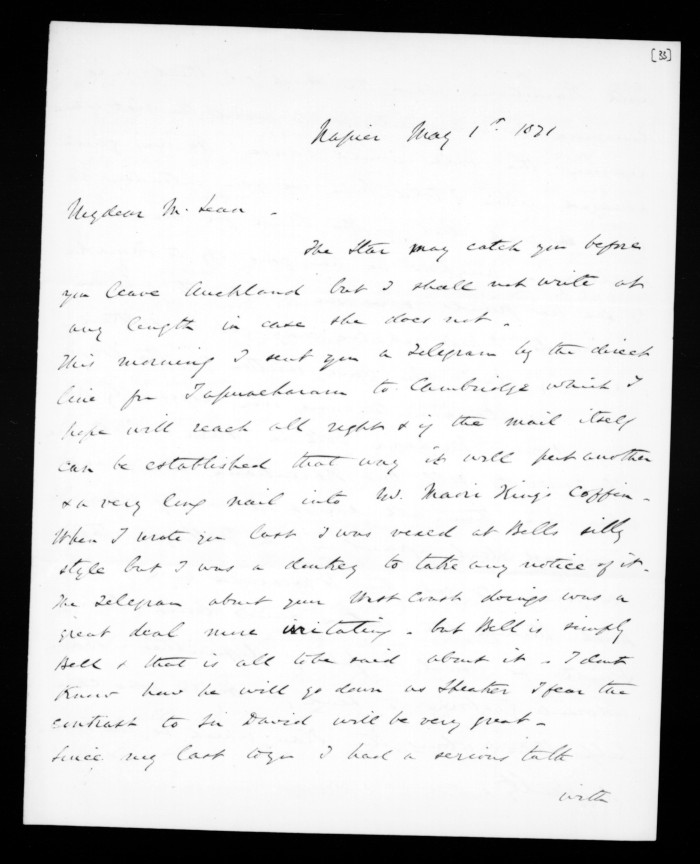 [33]
Napier May 1st 1871
My dear McLean -
The Star may catch you before
you leave Auckland but I shall not write at
any length in case she does not.
This morning I sent you a Telegram by the direct
line fm Tapuaeharam to Cambridge which I
hope will reach all right & if the mail itself
can be established that way it will put another
& a very long nail into Mr. Maori King's Coffin -
When I wrote you last I was vexed at Bells silly
style but I was a donkey to take any notice of it -
The Telegram about your West Coast doings was a
great deal more irritating - but Bell is simply
Bell & that is all to be said about it - I dont
know how he will go down as Speaker I fear the
contrast to Sir David will be very great -
Since my last to you I had a serious talk
with